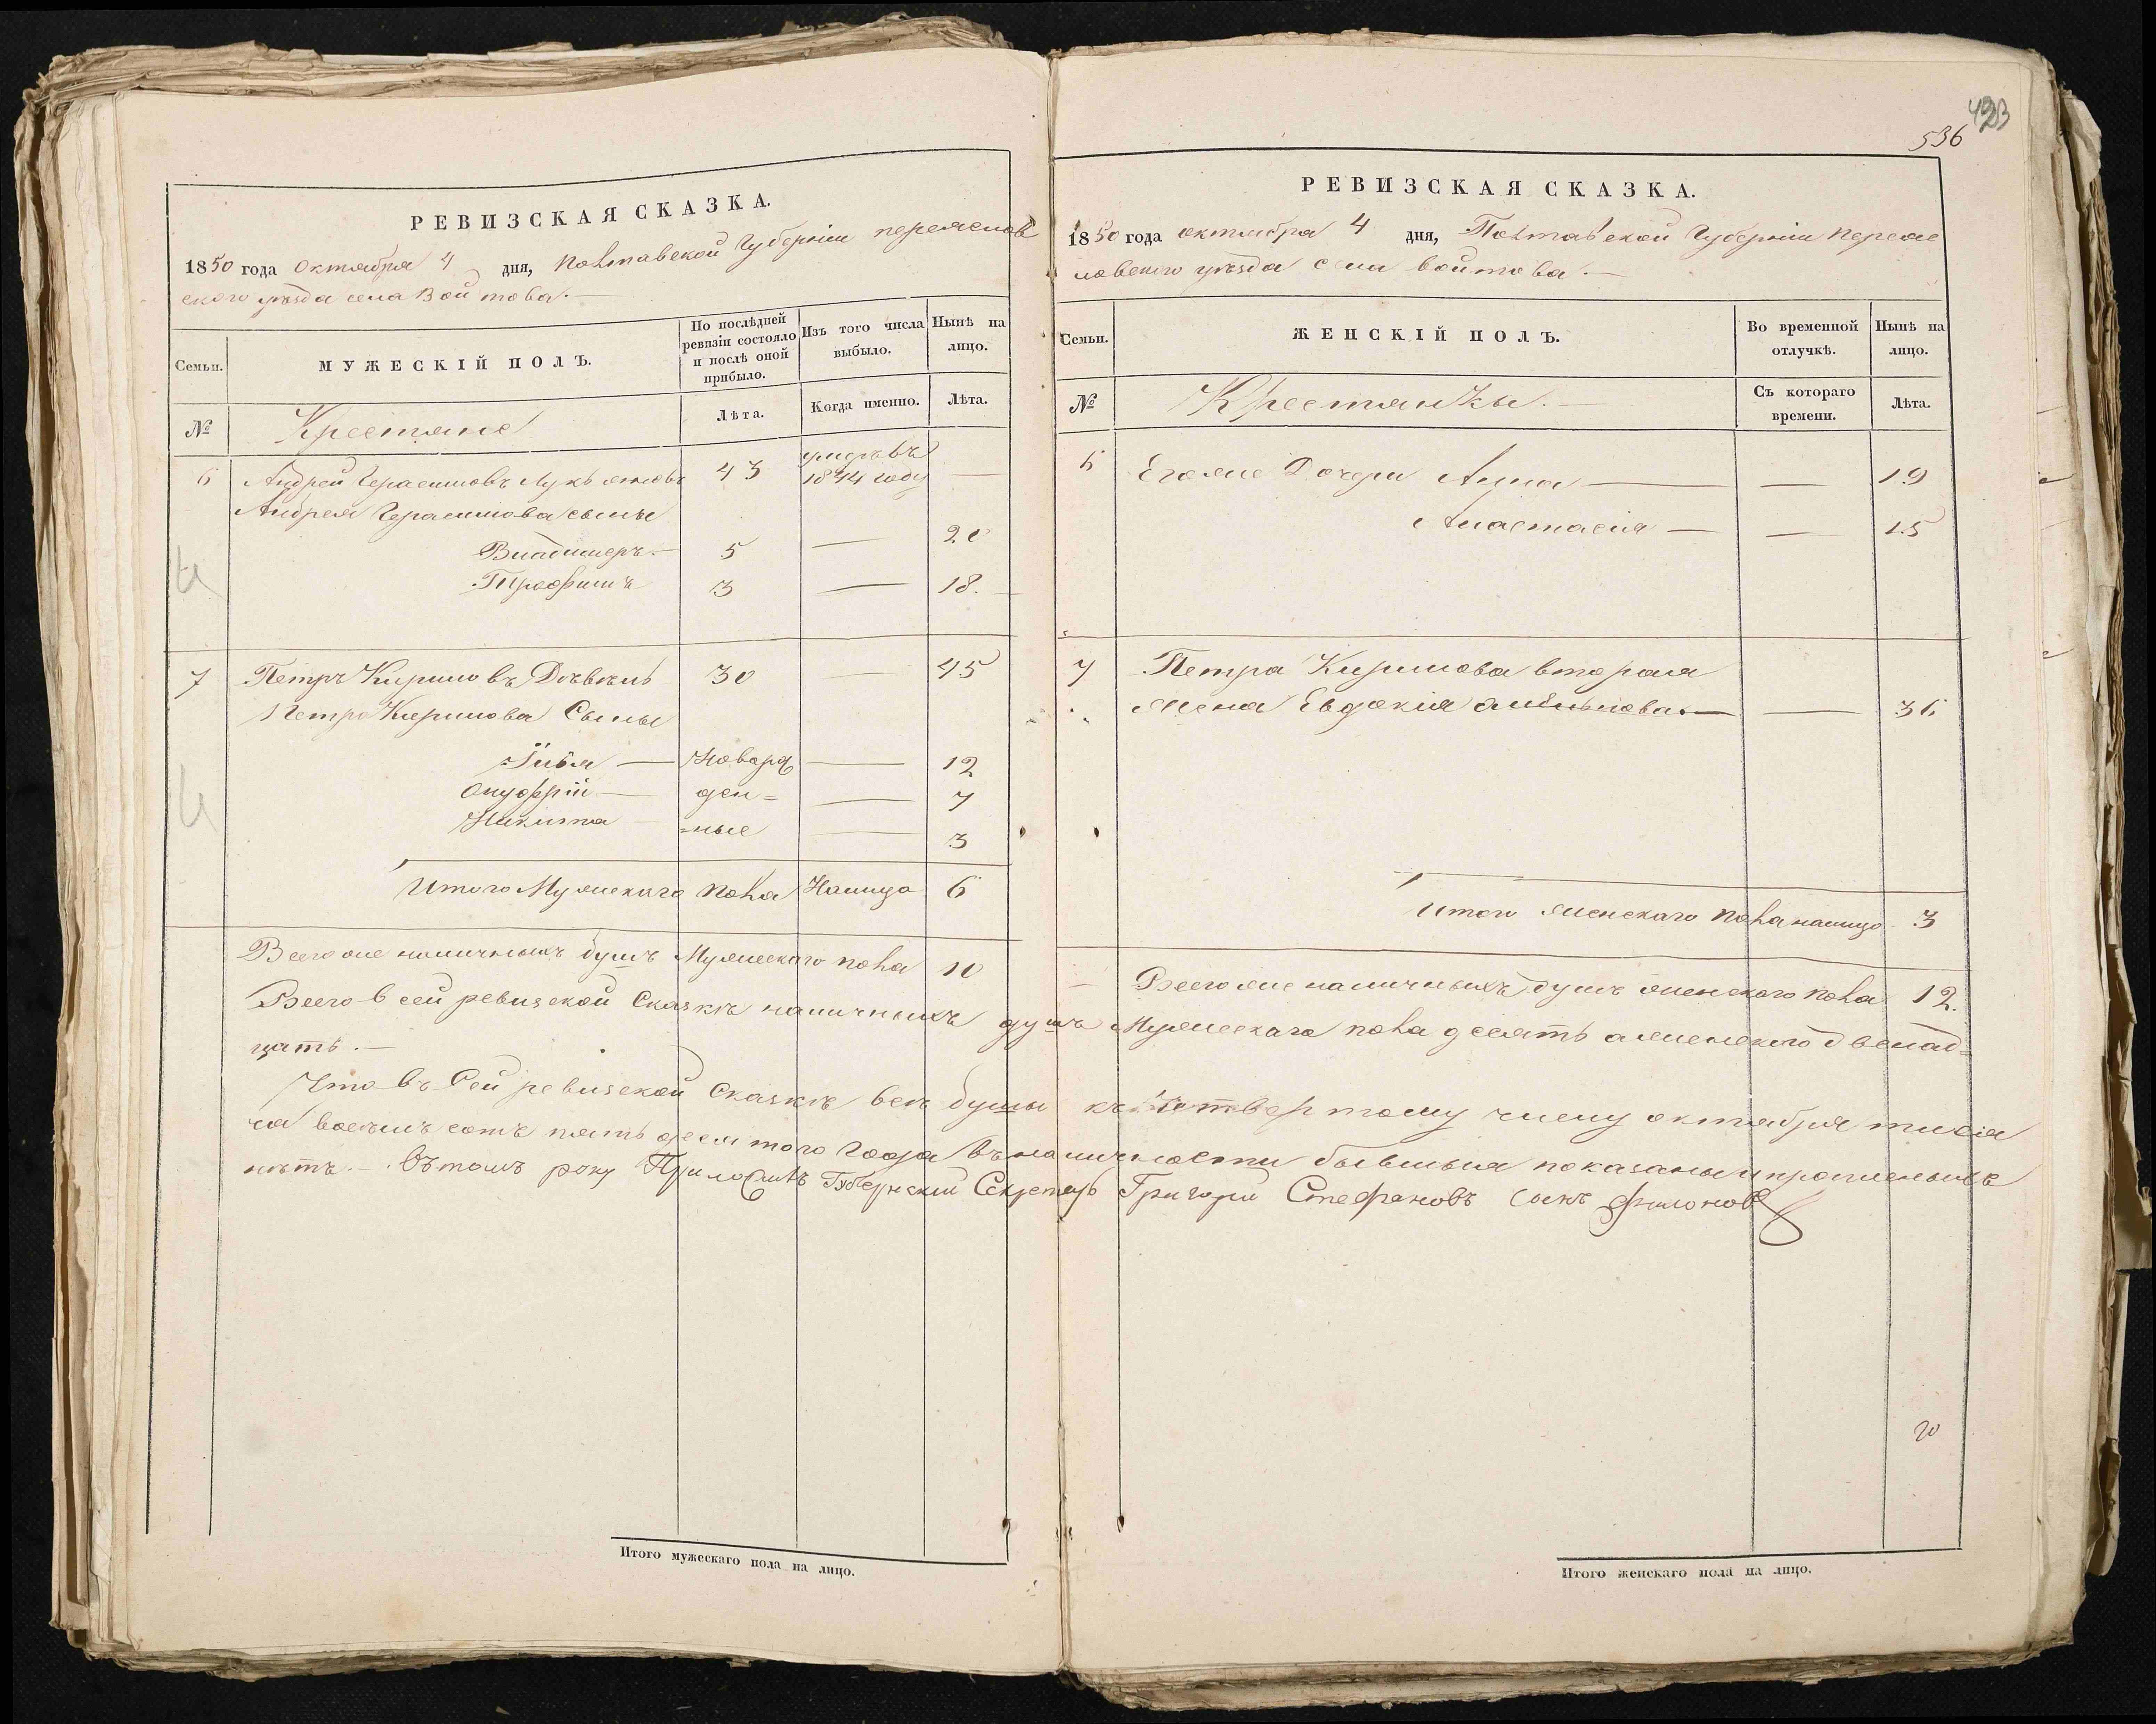 423
536
РЕВИЗСКАЯ СКАЗКА.
1850 года Октября 4 дня, Полтавской Губерніи переяслов
ского уѣзда села Войтова.—
Семьи. МУЖЕСКІЙ ПОЛЪ. По послѣдней ревизіи состояло и послѣ оной прибыло. Изъ того числа выбыло. Нынѣ на лицо.
№ Крестяне Лѣта. Когда именно. Лѣта.
6 Андрей Герасимовъ 43 умеръ въ 1844 году —
Андрея Герасимова сыны
Владимеръ.— 5 — 20
Трофимъ 3 — 18.
7 Петръ Кириловъ 30 — 45
Петра Кирилова Сыны
Илья — Новорож — 12
Онуфрій — ден= — 7
Никита — =ные — 3
Итого Мужескаго пола Налицо 6
Всего же наличныхъ душъ Мужескаго пола 10
РЕВИЗСКАЯ СКАЗКА.
1850 года октября 4 дня, Полтавской Губерніи Переяс
ловского уѣзда села войтова.—
Семьи. ЖЕНСКІЙ ПОЛЪ. Во временной отлучкѣ. Нынѣ на лицо.
№ Крестянки.— Съ котораго времени. Лѣта.
6 Его же Дочери Анна — — 19
Анастасія — — 15
7 Петра Кирилова вторая
жена Евдокія — — 36
Итого женскаго пола налицо 3
Всего же наличныхъ душъ женского пола 12.
Всего в сей ревизской Сказкѣ наличныхъ душъ Мужескаго пола десять а женского двенад=
цать.—
Что въ Сей ревизской Сказкѣ всѣ душы къ четвертому числу октября тися
ча восемъ сотъ пятьдесятого Года въ наличности бывшыя показаны и
нѣтъ.— Въ томъ руку Приложилъ Губернскій Секретарь Григорій Стефановъ сынъ Филоновъ
20
Итого мужескаго пола на лицо.
Итого женскаго пола на лицо.